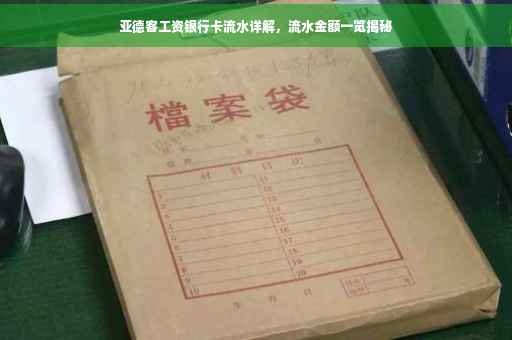 亚德客工资银行卡流水详解，流水金额一览揭秘
檔案袋
材料目次
1 11
2 12
3 13
4 14
5 15
6 16
7 17
8 18
9 19
10 20
年 月 日